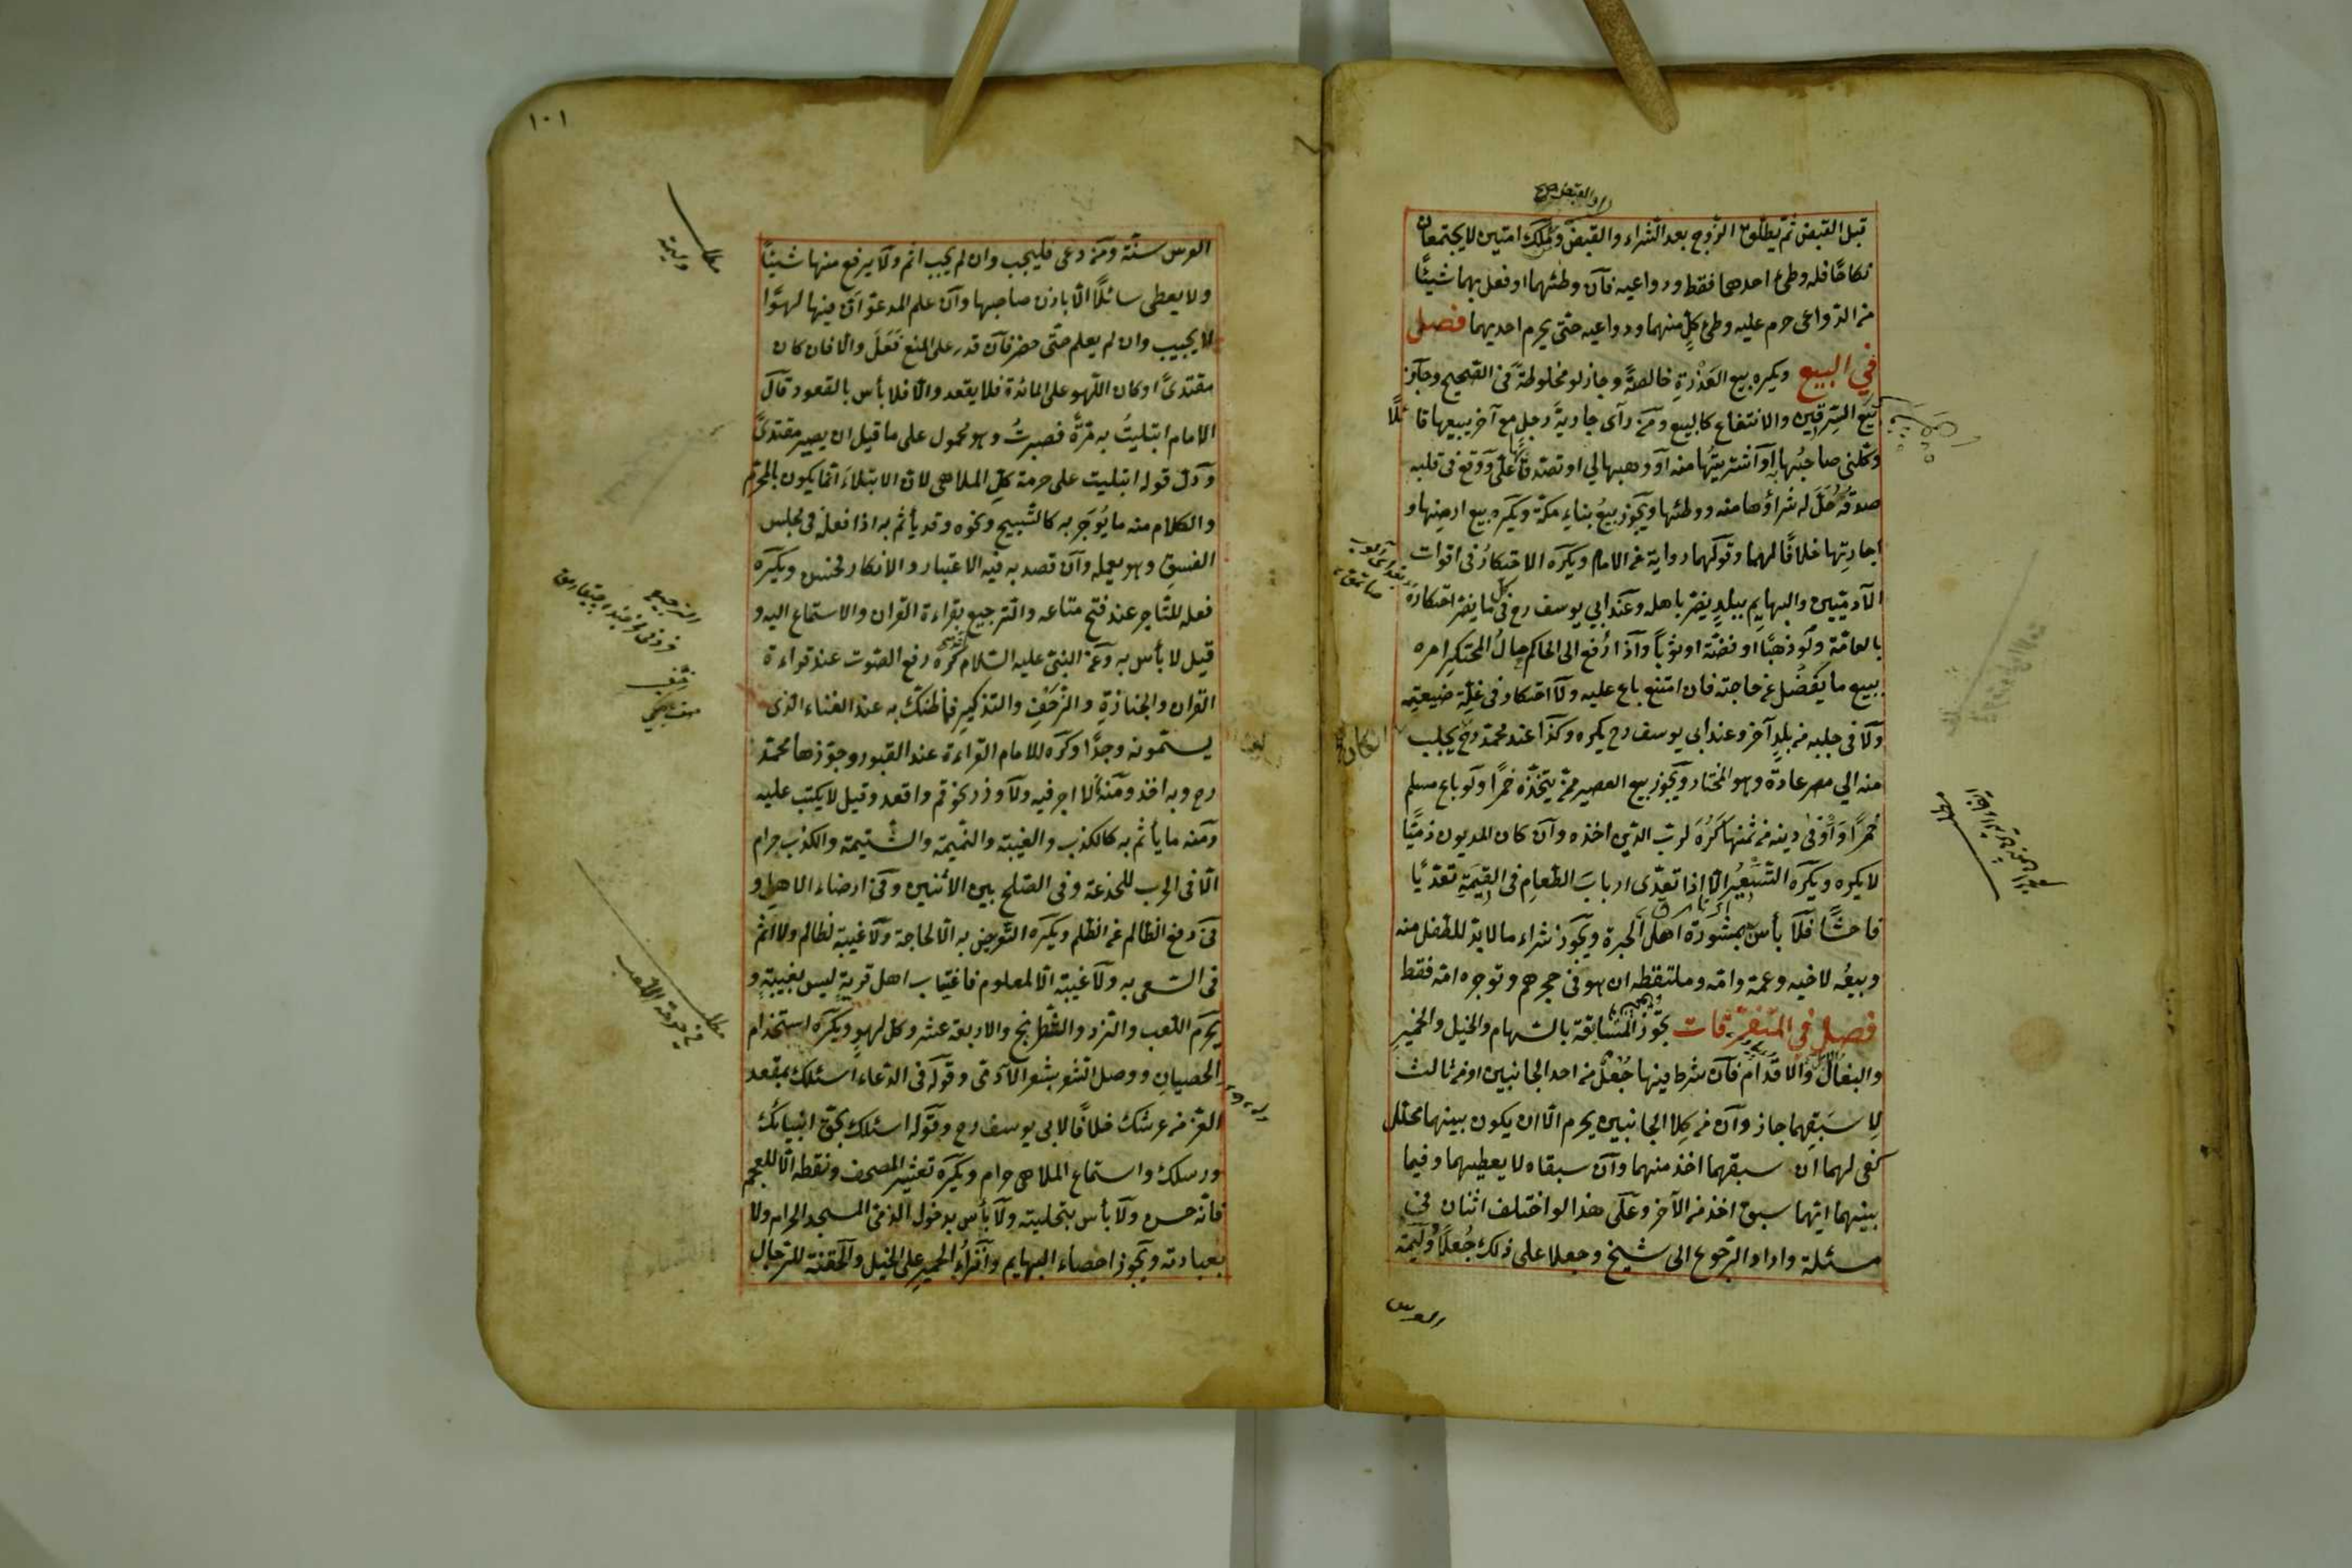 والقبض صح
قبل القبض ثم يطلق الزوج بعد الشراء والقبض ومن ملك امتين لا يجتمعان
نكاحًا فله وطئ احدهما فقط ودواعيه فآن وطئهما او فعل بهما شيئًا
من الدواعى حرم عليه وطئ كلٍ منهما ودواعيه حتى يحرم احديهما فصل
في البيع ويكره بيع العَذْرَةِ خالصةً وجاز لو مخلوطةً فى الصحيح وجآز
بيع السِرقين والانتفاع كالبيع ومَن رآى جاريةَ رجلٍ مع آخر يبيعها قائلًا
وكلنى صاحبُها به آو آشتريتها منه آو وهبها لي او تصدق بها علىّ ووَقع فى قلبه
صدقهُ حَلَّ له شراؤها منه ووطئها ويَجوز بيعُ بناءِ مكةَ ويَكره بيع ارضِها و
اجارتِها خلافًا لهما وقولُهما رواية عن الامام ويَكرَه الاحتكارُ فى اقوات
الآدميين والبهايِمِ ببلدٍ يضر باهله وعَند ابي يوسف رح فى كل ما يضر احتكاره
بالعامّة ولَو ذهبًا او فضّة او ثوبًا وآذا رُفع الى الحاكم حالُ المحتكِرِ امره
ببيع ما يَفضُل عن حاجته فان امتنع باع عليه ولَا احتكار فى غلّة ضيعتِه
ولَا فى جلبه من بلدٍ آخر وعند ابى يوسف رح يكره وكَذَا عند محمّد رح ان كان يجلب
منه الي مصر عادةً وهو المختار ويَجوز بيع العصير ممّن يتّخذه خمرًا ولَو باع مسلم
خمرًا وَاَوْفىٰ دينه من ثمنها كَرُهَ لربّ الدّين اخذه وآن كان المديون ذميًّا
لا يكره ويَكره التّسعيُر الّا اذا تعدّى اربابَ الطّعامِ فى القيمَةِ تعدّيًا
فاحشًا فلَا بأس بمشورة اهل الخبرة ويَجوز شراء ما لا بدّ للطّفل منه
وبيعُه لاخيه وعمه وامّه وملتقطه ان هو فى حجرهم وتوجره امّه فقط
فصل في المتفرّقات تجَوز المسابقة بالسهام والخيل والحميرِ
والبغال والاقدام فآن شرط فيها جُعلٌ من احد الجانبين او من ثالث
لِاسبَقِهما جاز وآن من كِلا الجانبين يحرم الّا ان يكون بينهما محلّل
كفى لهما ان سبقهما اخذ منهما وآن سبقاه لا يعطيهما وفيما
بينهما ايّهما سبق اخذ من الآخر وعَلى هذا لو اختلف اثنان فى
مسئلة وارادا الرّجوع الى شيخ وجعلا على ذلك جُعلًا ووليمة
العرس
١٠١
العرس سنّة ومَن دعى فليجب وان لم يجب اثم ولَا يرفع منها شيئًا
ولا يعطى سائلًا الّا باذن صاجبها وآن علم المدعوّ اَنّ فيها لهوًا
لا يجيب وان لم يعلم حتّى حضر فآن قدر على المنع فَعَلَ والّا فان كان
مقتدىً او كان اللّهو على المائدة فلا يقعد والّا فلا بأس بالقعود قآل
الامام ابتليتُ به مَرّةً فصبرتُ وهو محمول على ما قيل ان يصير مقتدىً
ودَلّ قوله ابتليت على حرمة كلّ الملاهى لانّ الابتلاءَ انّما يكون بالمحرّم
والكلام منه ما يُوجَر به كالتّسبيح ونحوه وقد يأثم به اذا فعله فى مجلس
الفسق وهو يعمله وآن قصد به فيه الاعتبار والانكار فحَسَن ويَكره
فعله للتّاجر عند فتح متاعه والترجيع بقراءة القران والاستماع اليه و
قيل لا بأس به وعَن النبيّ عليه السّلام انّه كرِه رفع الصّوت عند قراءة
القران والجنازةِ والزّحَفِ والتذكيرِ فما ظنّك به عند الغناء الّذى
يسمّونه وجدًا وكَرِه الامام القراءة عند القبور وجوّزها محمّد
رح وبه اخذ ومَنه ما لا اجر فيه ولَا وزر نحو قم واقعد وقيل لا يكتب عليه
ومَنه ما يأثم به كالكذب والغيبة والنّميمة والشّتيمة والكذب حرام
الّا فى الحرب للخدعة وفى الصّلح بين الاثنين وفَى ارضاء الاهل و
فَى دفع الظّالم عن الظّلم ويَكره التّعريض به الّا لحاجة ولَا غيبة لظالم ولا اثم
فى السّعى به ولَا غيبة الّا لمعلوم فاغتياب اهل قريةٍ ليس بغيبةٍ و
يَحرم اللّعب والنّرد والشّطرنج والاربعة عشر وكلّ لهوٍ ويَكره استخدام
الخصيانِ ووصل الشعر بشعر الآدمى وقَوله فى الدّعاء اسئلك بمقعد
العزّ من عرشك خلافًا لابى يوسف رح وقَوله اسئلك بحقّ انبيائك
ورسلك واستماع الملاهى حرام ويَكره تعشير المصحف ونقطه الّا للعجم
فانّه حسن ولَا بأس بتحليته ولَا بأس بدخول الذّمى المسجد الحرام ولا
بعيادته ويَجوز اخصاء البهايم وآنزاءُ الحميرِ على الخيل والحقنة للرّجال